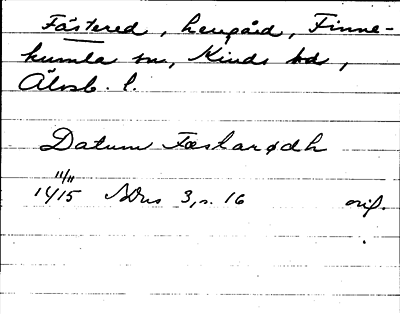 Fästered, herrgård, Finne-
kumla sn, Kinds hd,
Älvsb. l.
Datum Fæstarødh
11/11
1415 SDns 3, s. 16 orig.